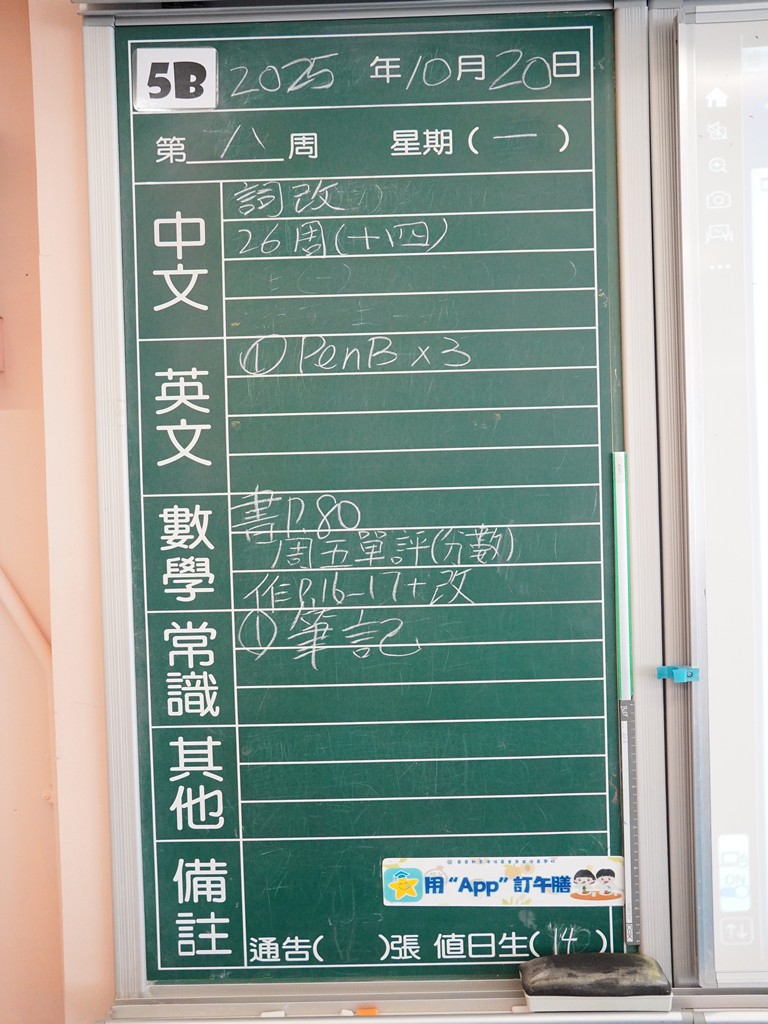 5B 2025 年 10 月 20 日
第 八 周 星期 ( 一 )
中文
詞改
26周(十四)
英文
① PenB x 3
數學
書P.80
周五單評(分數)
作P.16-17+改
常識
① 筆記
其他
備註
用 “App” 訂午膳
通告( )張 值日生( 14 )